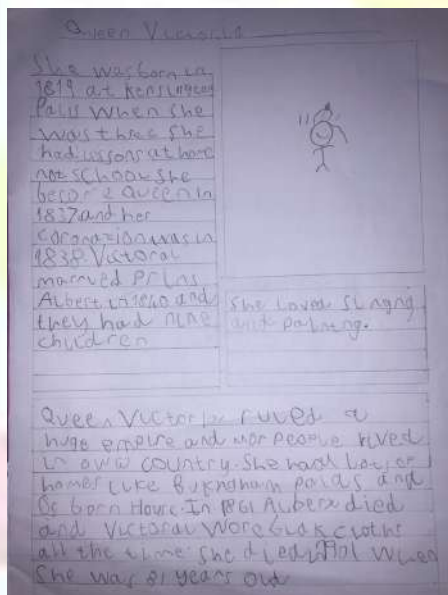 Queen Victoria
She was born in
1819 at Kensington
Palis When she
was three she
had lissons at home
not school she
become Queen in
1837 and her
coronazion was in
1838. Victoral
married Prins
Albert in 1840 and
they had nine
children
She loved singing
and painting.
Queen Victoria ruled a
huge empire and mor people lived
in own country. She had lots of
homes like Bukingham palas and
Osborn House. In 1861 Albert died
and Victoral Wore blak cloths
all the time. She died 1901 when
She was 81 years old